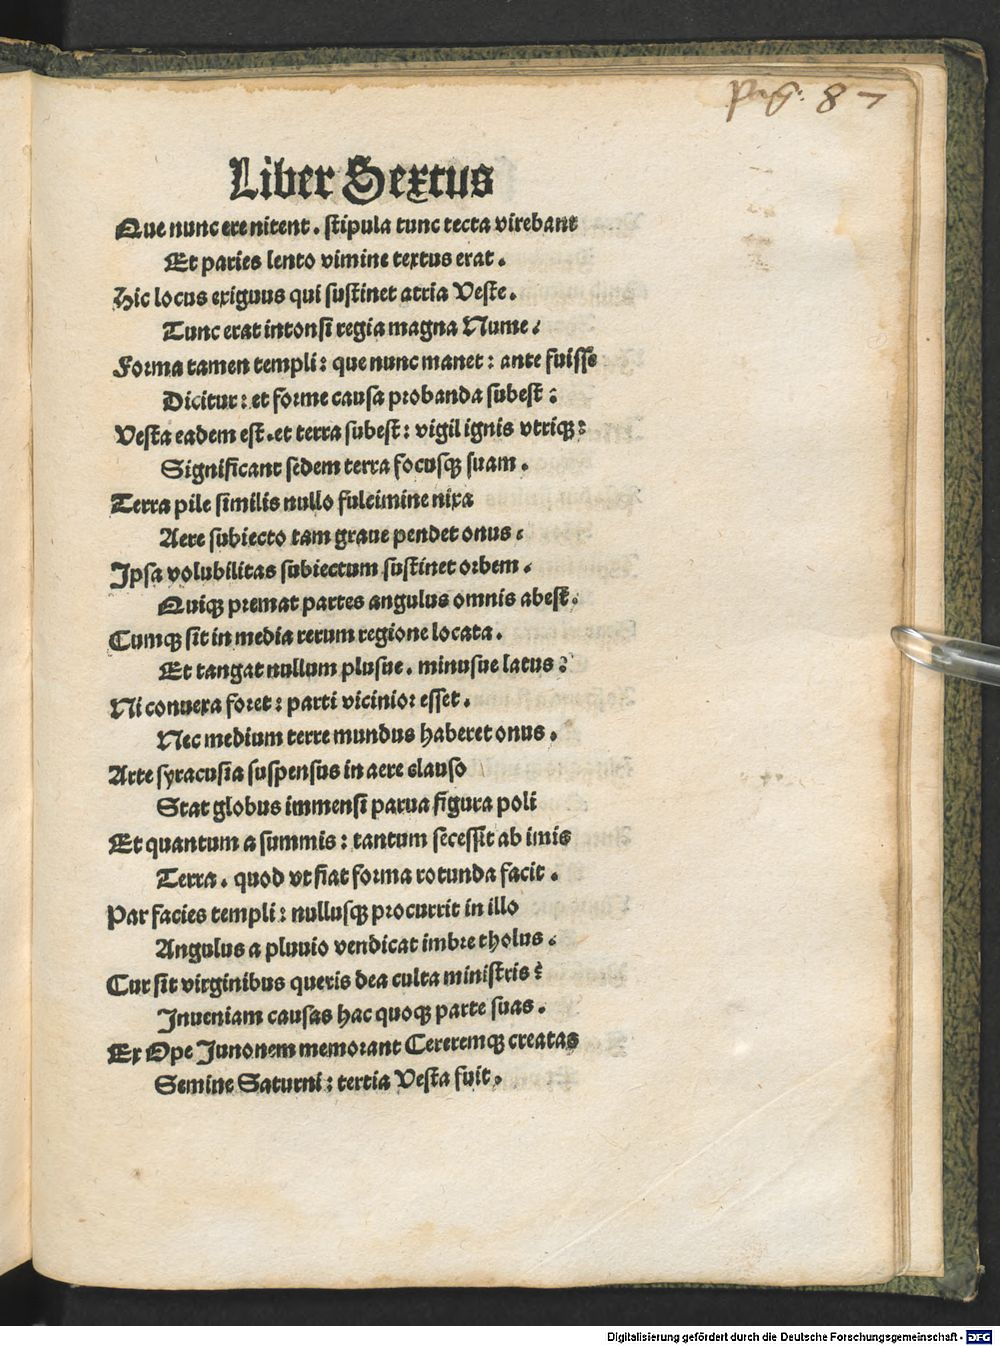 pag: 87
Liber Sextus
Que nunc ere nitent. stipula tunc tecta virebant
Et paries lento vimine textus erat.
Hic locus exiguus qui sustinet atria Veste.
Tunc erat intonsi regia magna Nume.
Forma tamen templi: que nunc manet: ante fuisse
Dicitur: et forme causa probanda subest:
Vesta eadem est. et terra subest: vigil ignis vtriqꝫ:
Significant sedem terra focusqꝫ suam.
Terra pile similis nullo fulcimine nixa
Aere subiecto tam graue pendet onus.
Ipsa volubilitas subiectum sustinet orbem.
Quiqꝫ premat partes angulus omnis abest.
Cumqꝫ sit in media rerum regione locata.
Et tangat nullum plusue. minusue latus:
Ni conuexa foret: parti vicinior esset.
Nec medium terre mundus haberet onus.
Arte syracusia suspensus in aere clauso
Stat globus immensi parua figura poli
Et quantum a summis: tantum secessit ab imis
Terra. quod vt fiat forma rotunda facit.
Par facies templi: nullusqꝫ procurrit in illo
Angulus a pluuio vendicat imbre tholus.
Cur sit virginibus queris dea culta ministris?
Inueniam causas hac quoqꝫ parte suas.
Ex Ope Junonem memorant Cereremqꝫ creatas
Semine Saturni: tertia Vesta fuit.
Digitalisierung gefördert durch die Deutsche Forschungsgemeinschaft - DFG